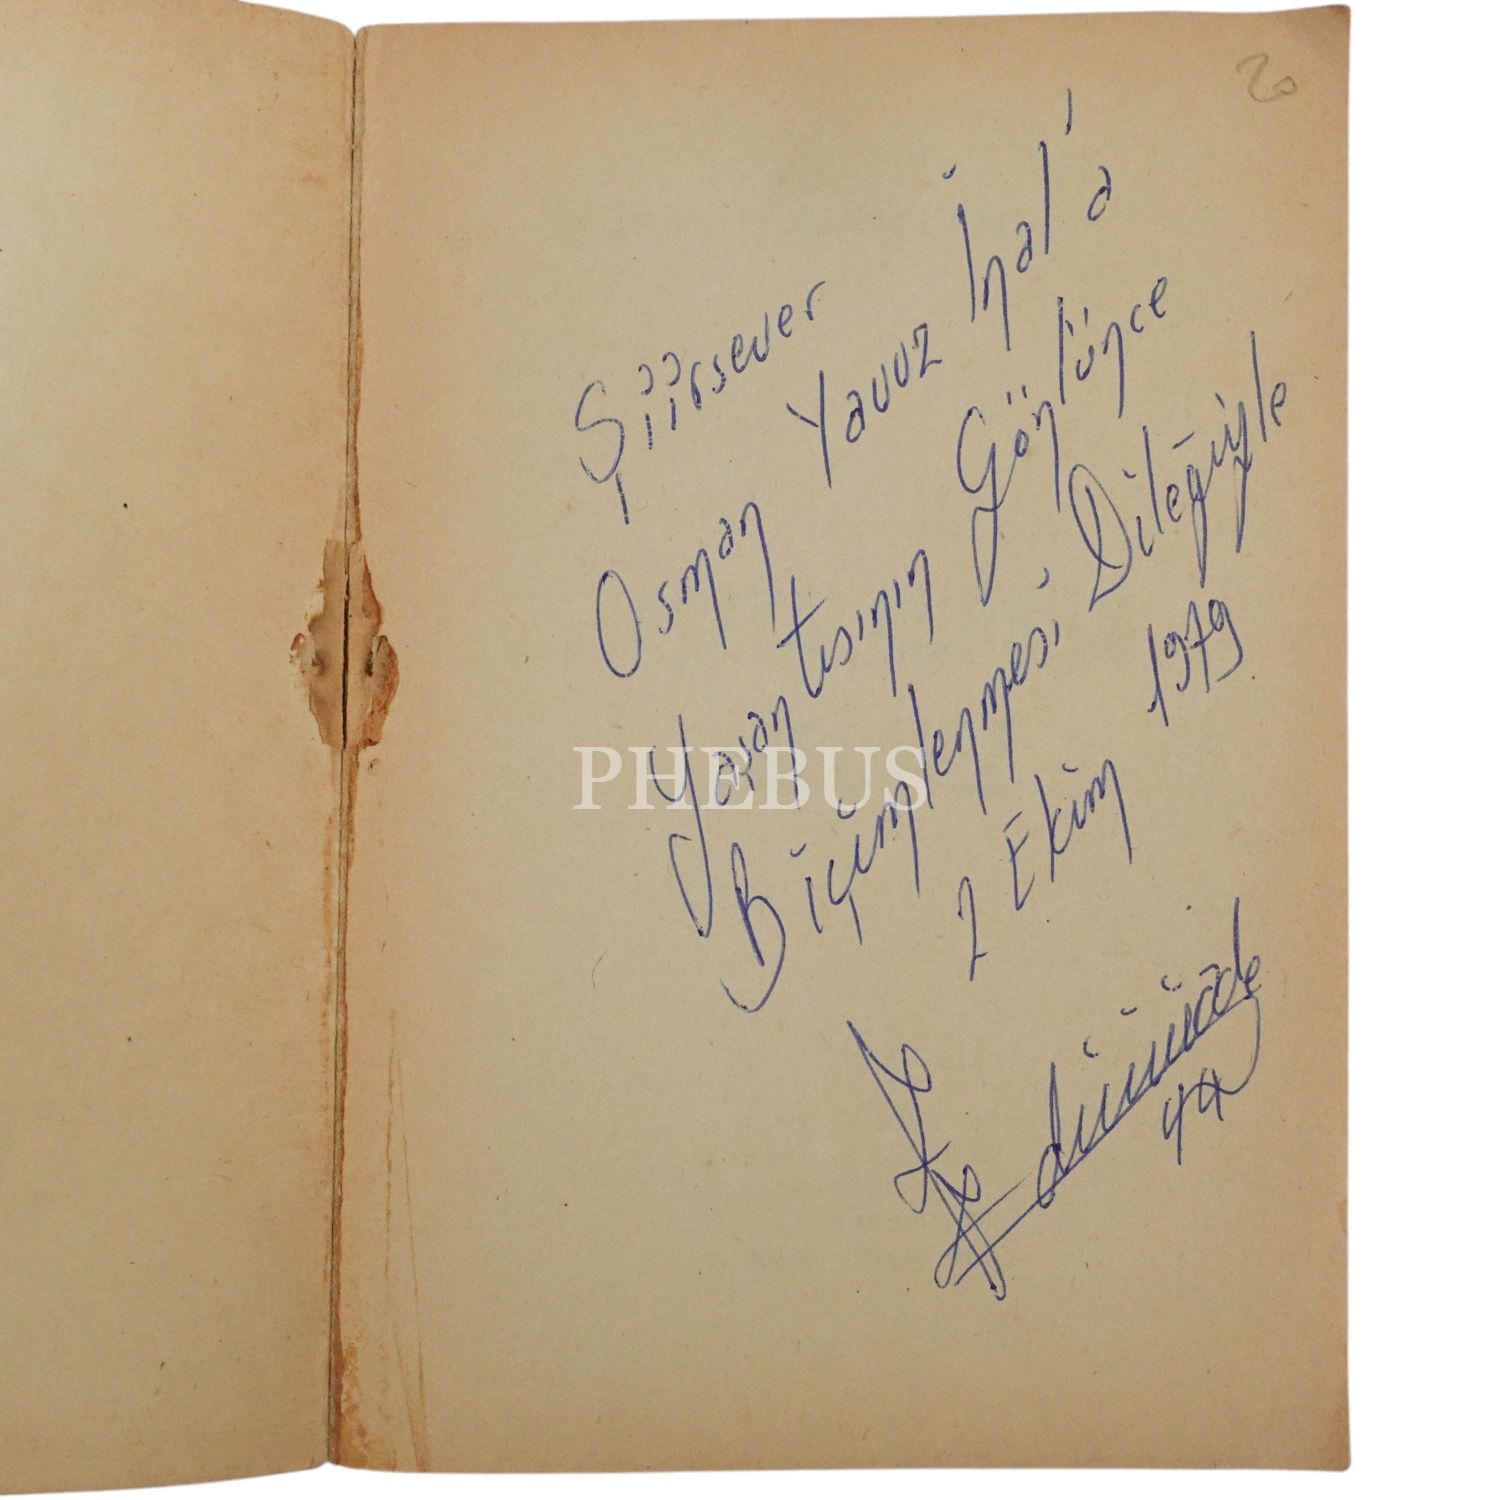 20
Şiirsever
Osman Yavuz İnal'a
Yaşantısının Gönlünce
Biçimlenmesi Dileğiyle
2 Ekim 1979
PHEBUS